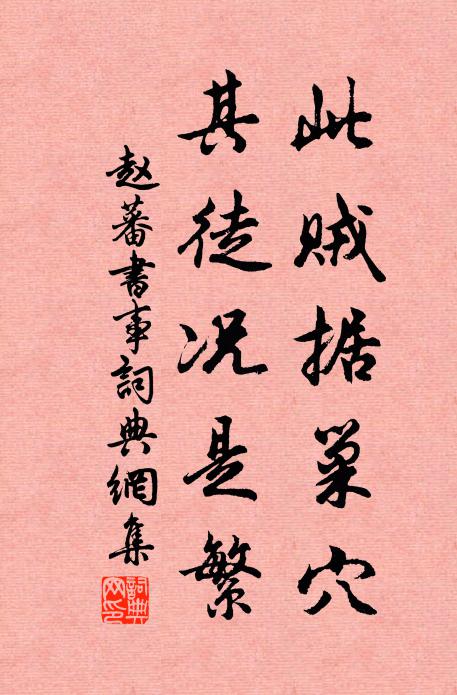 此贼据巢穴
其徒况是繁
赵蕃书事词典網集